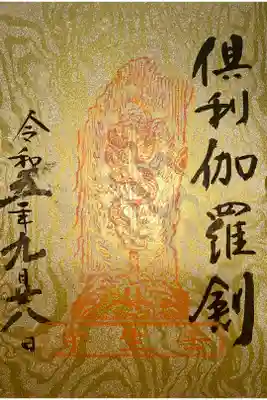 倶利伽羅剣
令和五年九月廿八日